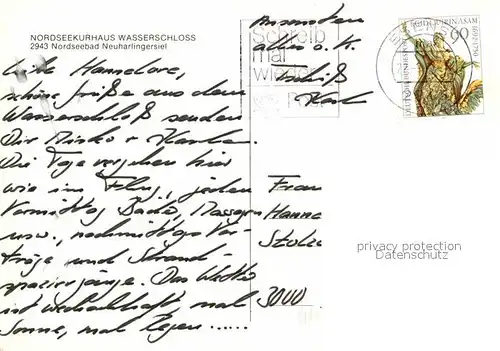 NORDSEEKURHAUS WASSERSCHLOSS
2943 Nordseebad Neuharlingersiel
Liebe Hannelore,
schöne Grüße aus dem
Wasserschloß senden
Dir Mirko + Karla.
Die Tage vergehen hier
wie im Flug, jeden
Vormittag Bäder, Massagen
usw., nachmittags Vor-
träge und Strand-
spaziergänge. Das Wetter
ist wechselhaft, mal
Sonne, mal Regen .....
Ansonsten
alles o.K.
Tschüß
Karla
Schreib
mal
wieder
Post
90
Frau
Hanne
3000
privacy protection
Datenschutz